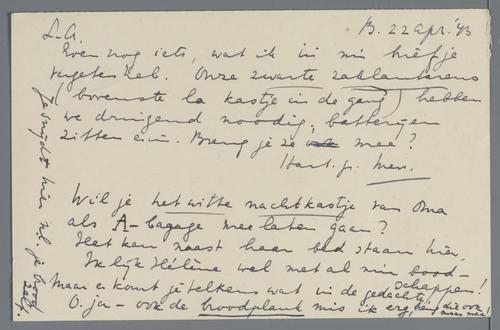 L.A.
B. 22 Apr. '43
Even nog iets, wat ik in m'n brief je
vergeten heb. Onze zwarte zaklantarens
(bovenste la kastje in de gang) hebben
we dringend noodig, batterijen
zitten erin. Breng je ze ook mee?
Hart. gr. Mien.
Wil je het witte nachtkastje van Oma
als A-bagage mee laten gaan?
Het kan naast haar bed staan hier.
Ik lijk Hélène wel met al m'n bood-
schappen!
Maar er komt je telkens wat in de gedachte
O. ja - ook de broodplank mis ik erg, breng die ook
maar mee!
Je snijdt hier nl. je brood
zelf.